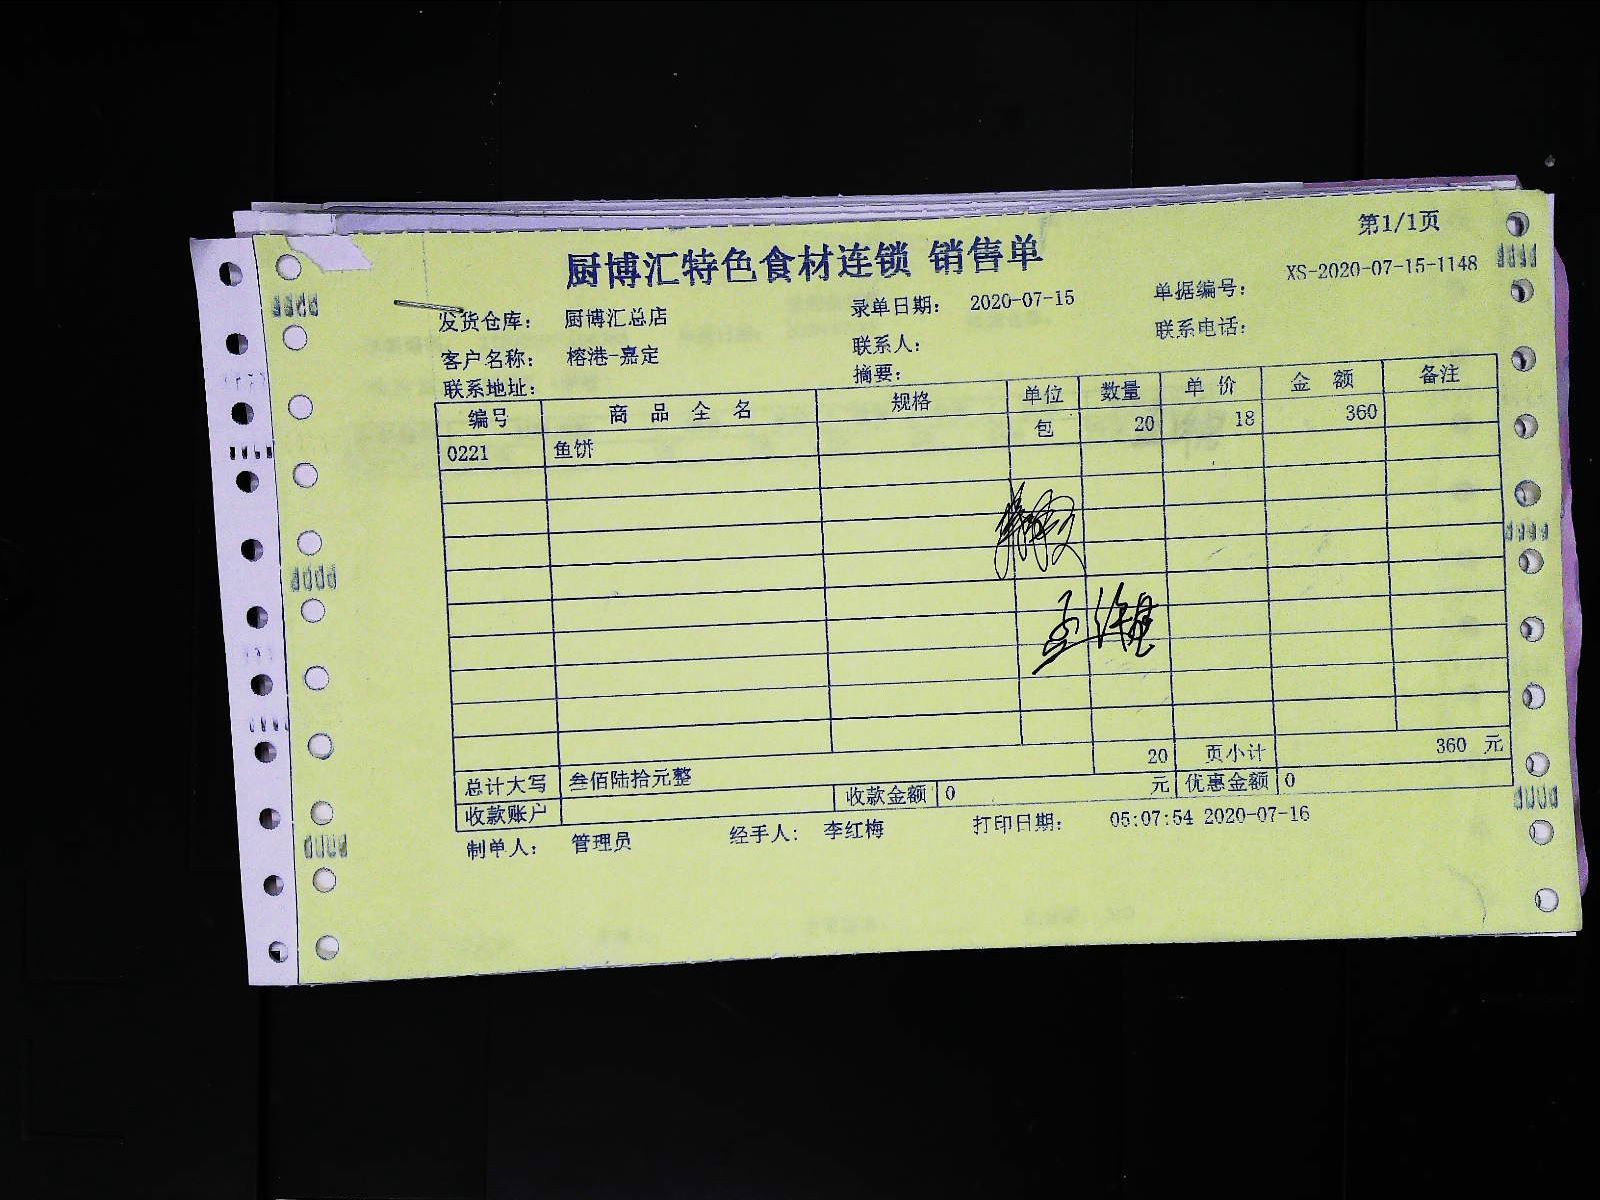 第1/1页
厨博汇特色食材连锁 销售单
发货仓库： 厨博汇总店 录单日期： 2020-07-15 单据编号： XS-2020-07-15-1148
客户名称： 榕港-嘉定 联系人： 联系电话：
联系地址： 摘要：
编号 商品全名 规格 单位 数量 单价 金额 备注
0221 鱼饼 包 20 18 360
20 页小计 360 元
总计大写 叁佰陆拾元整
收款账户 收款金额 0 元 优惠金额 0
制单人： 管理员 经手人： 李红梅 打印日期： 05:07:54 2020-07-16